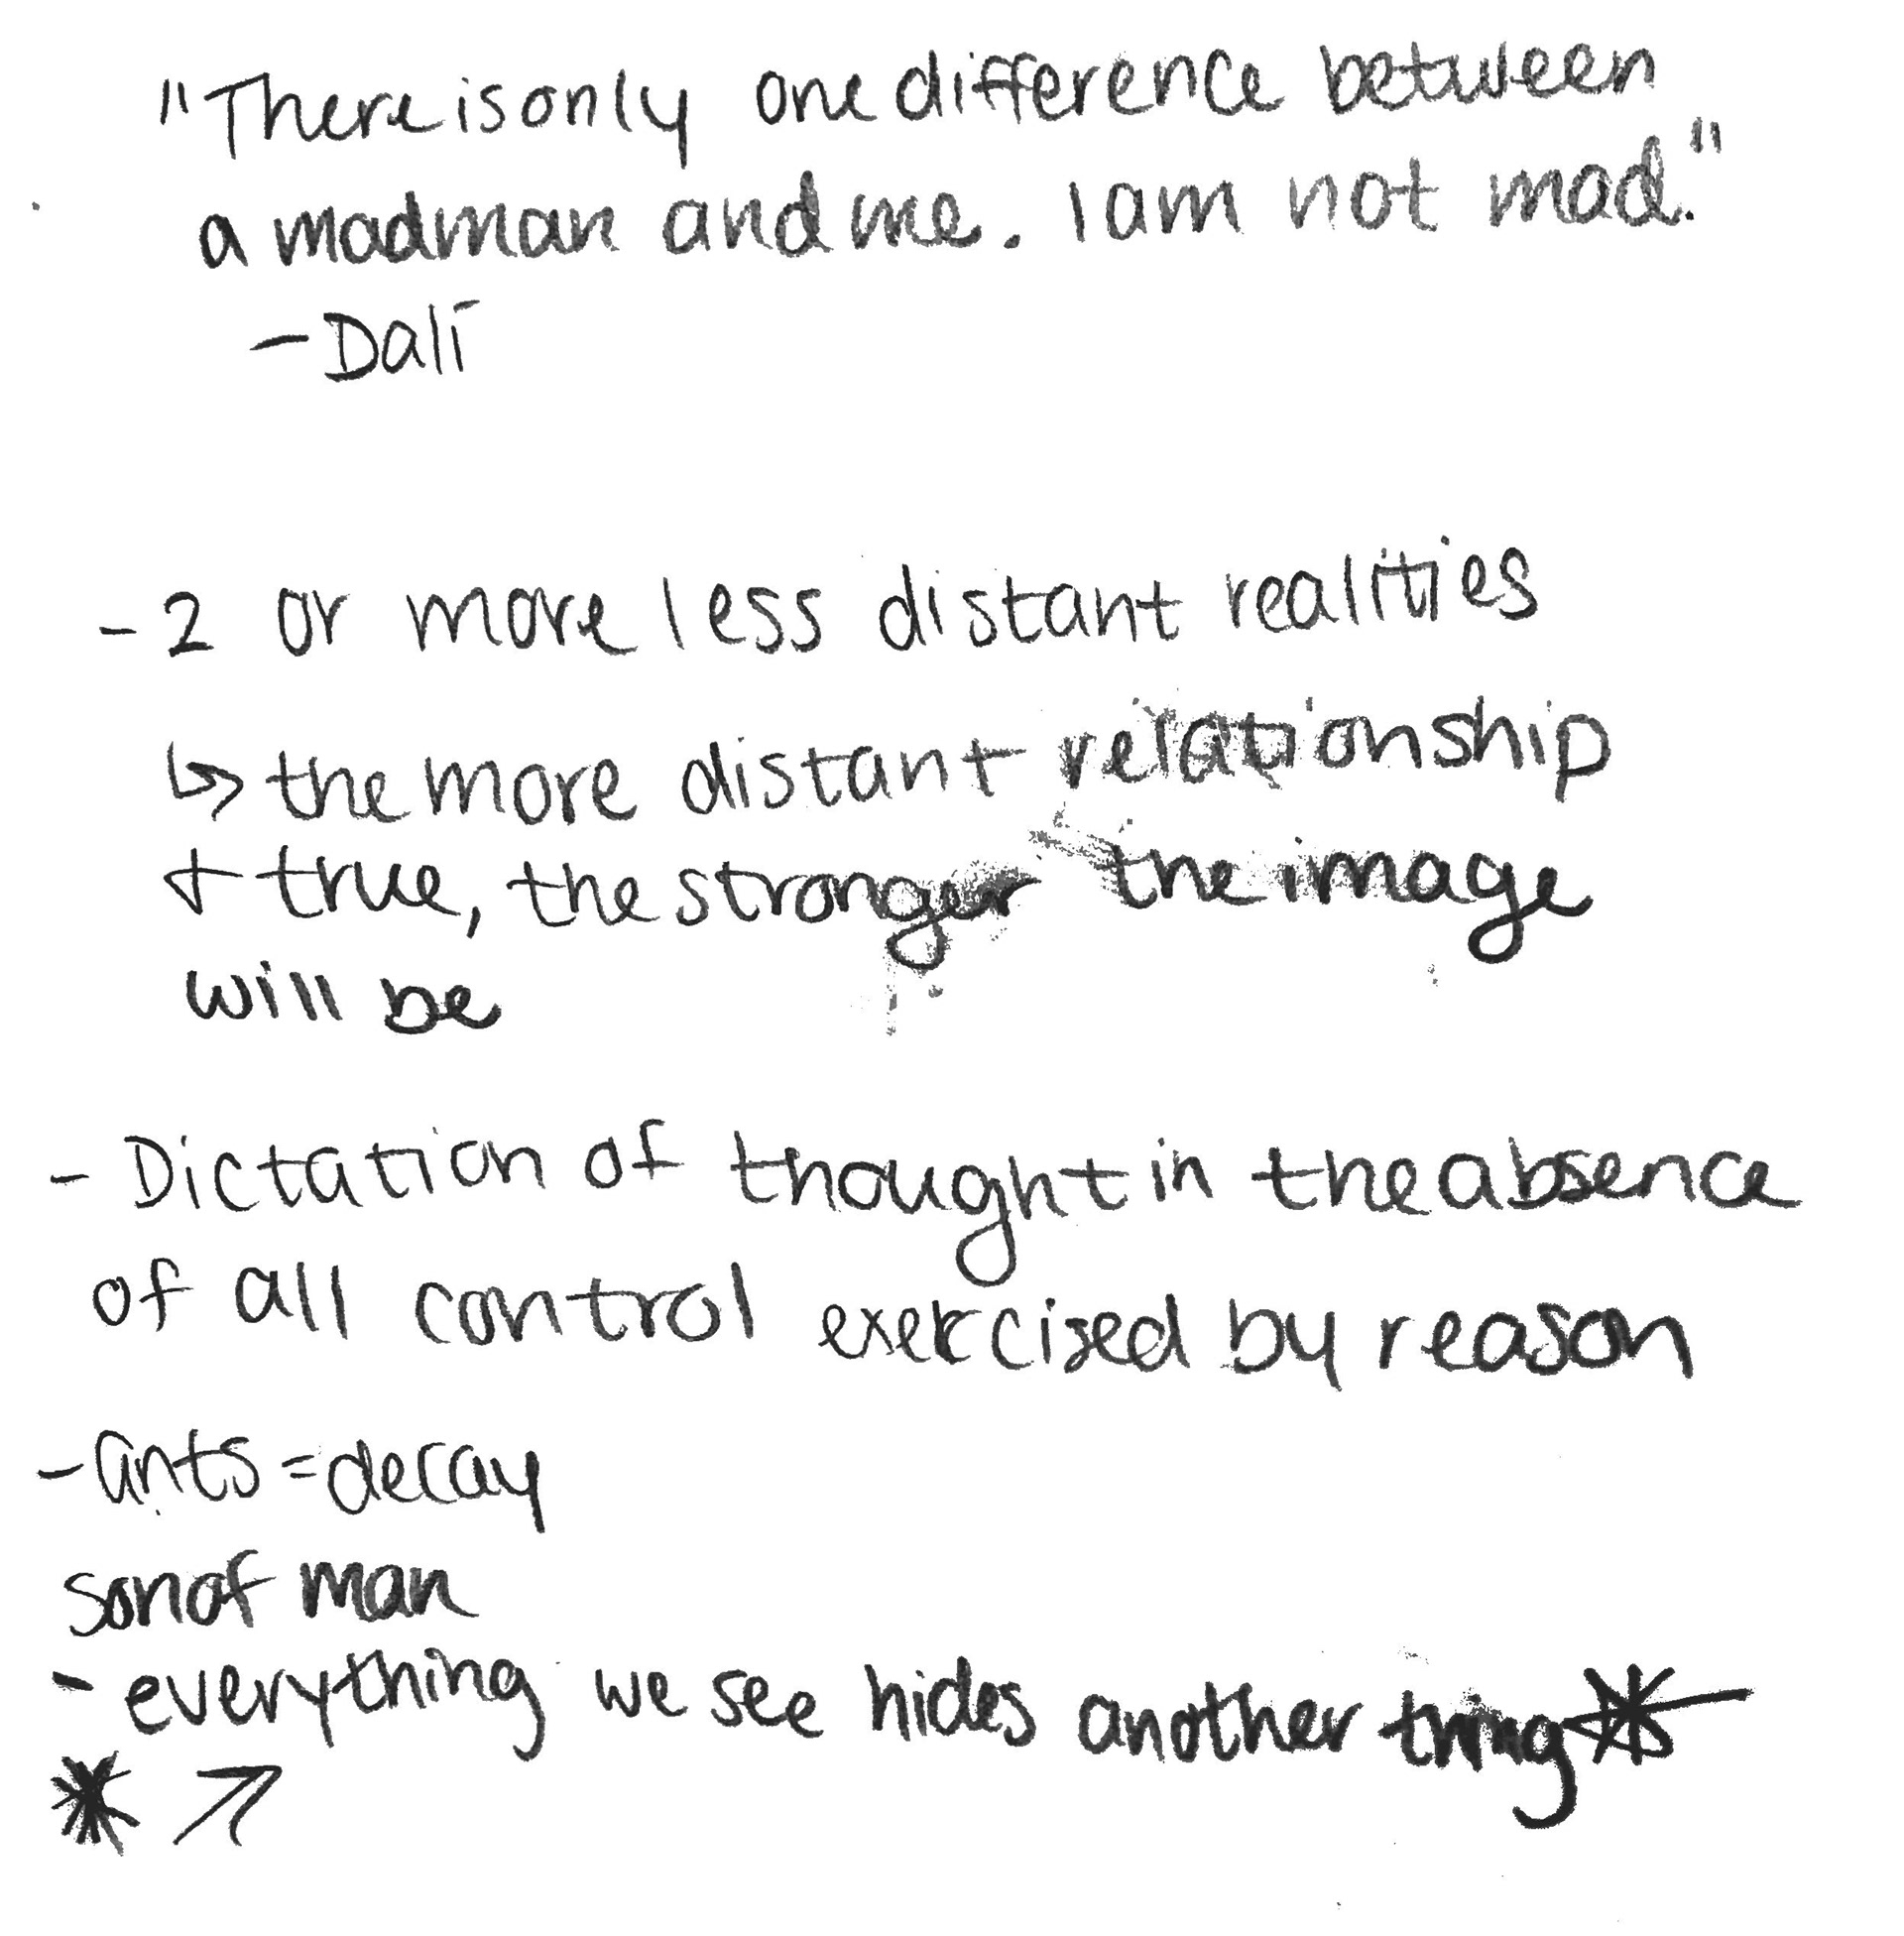 "There is only one difference between
a madman and me. I am not mad."
- Dalí
- 2 or more less distant realities
↳ the more distant relationship
+ true, the stronger the image
will be
- Dictation of thought in the absence
of all control exercised by reason
- Ants = decay
son of man
- everything we see hides another thing *
* ↗